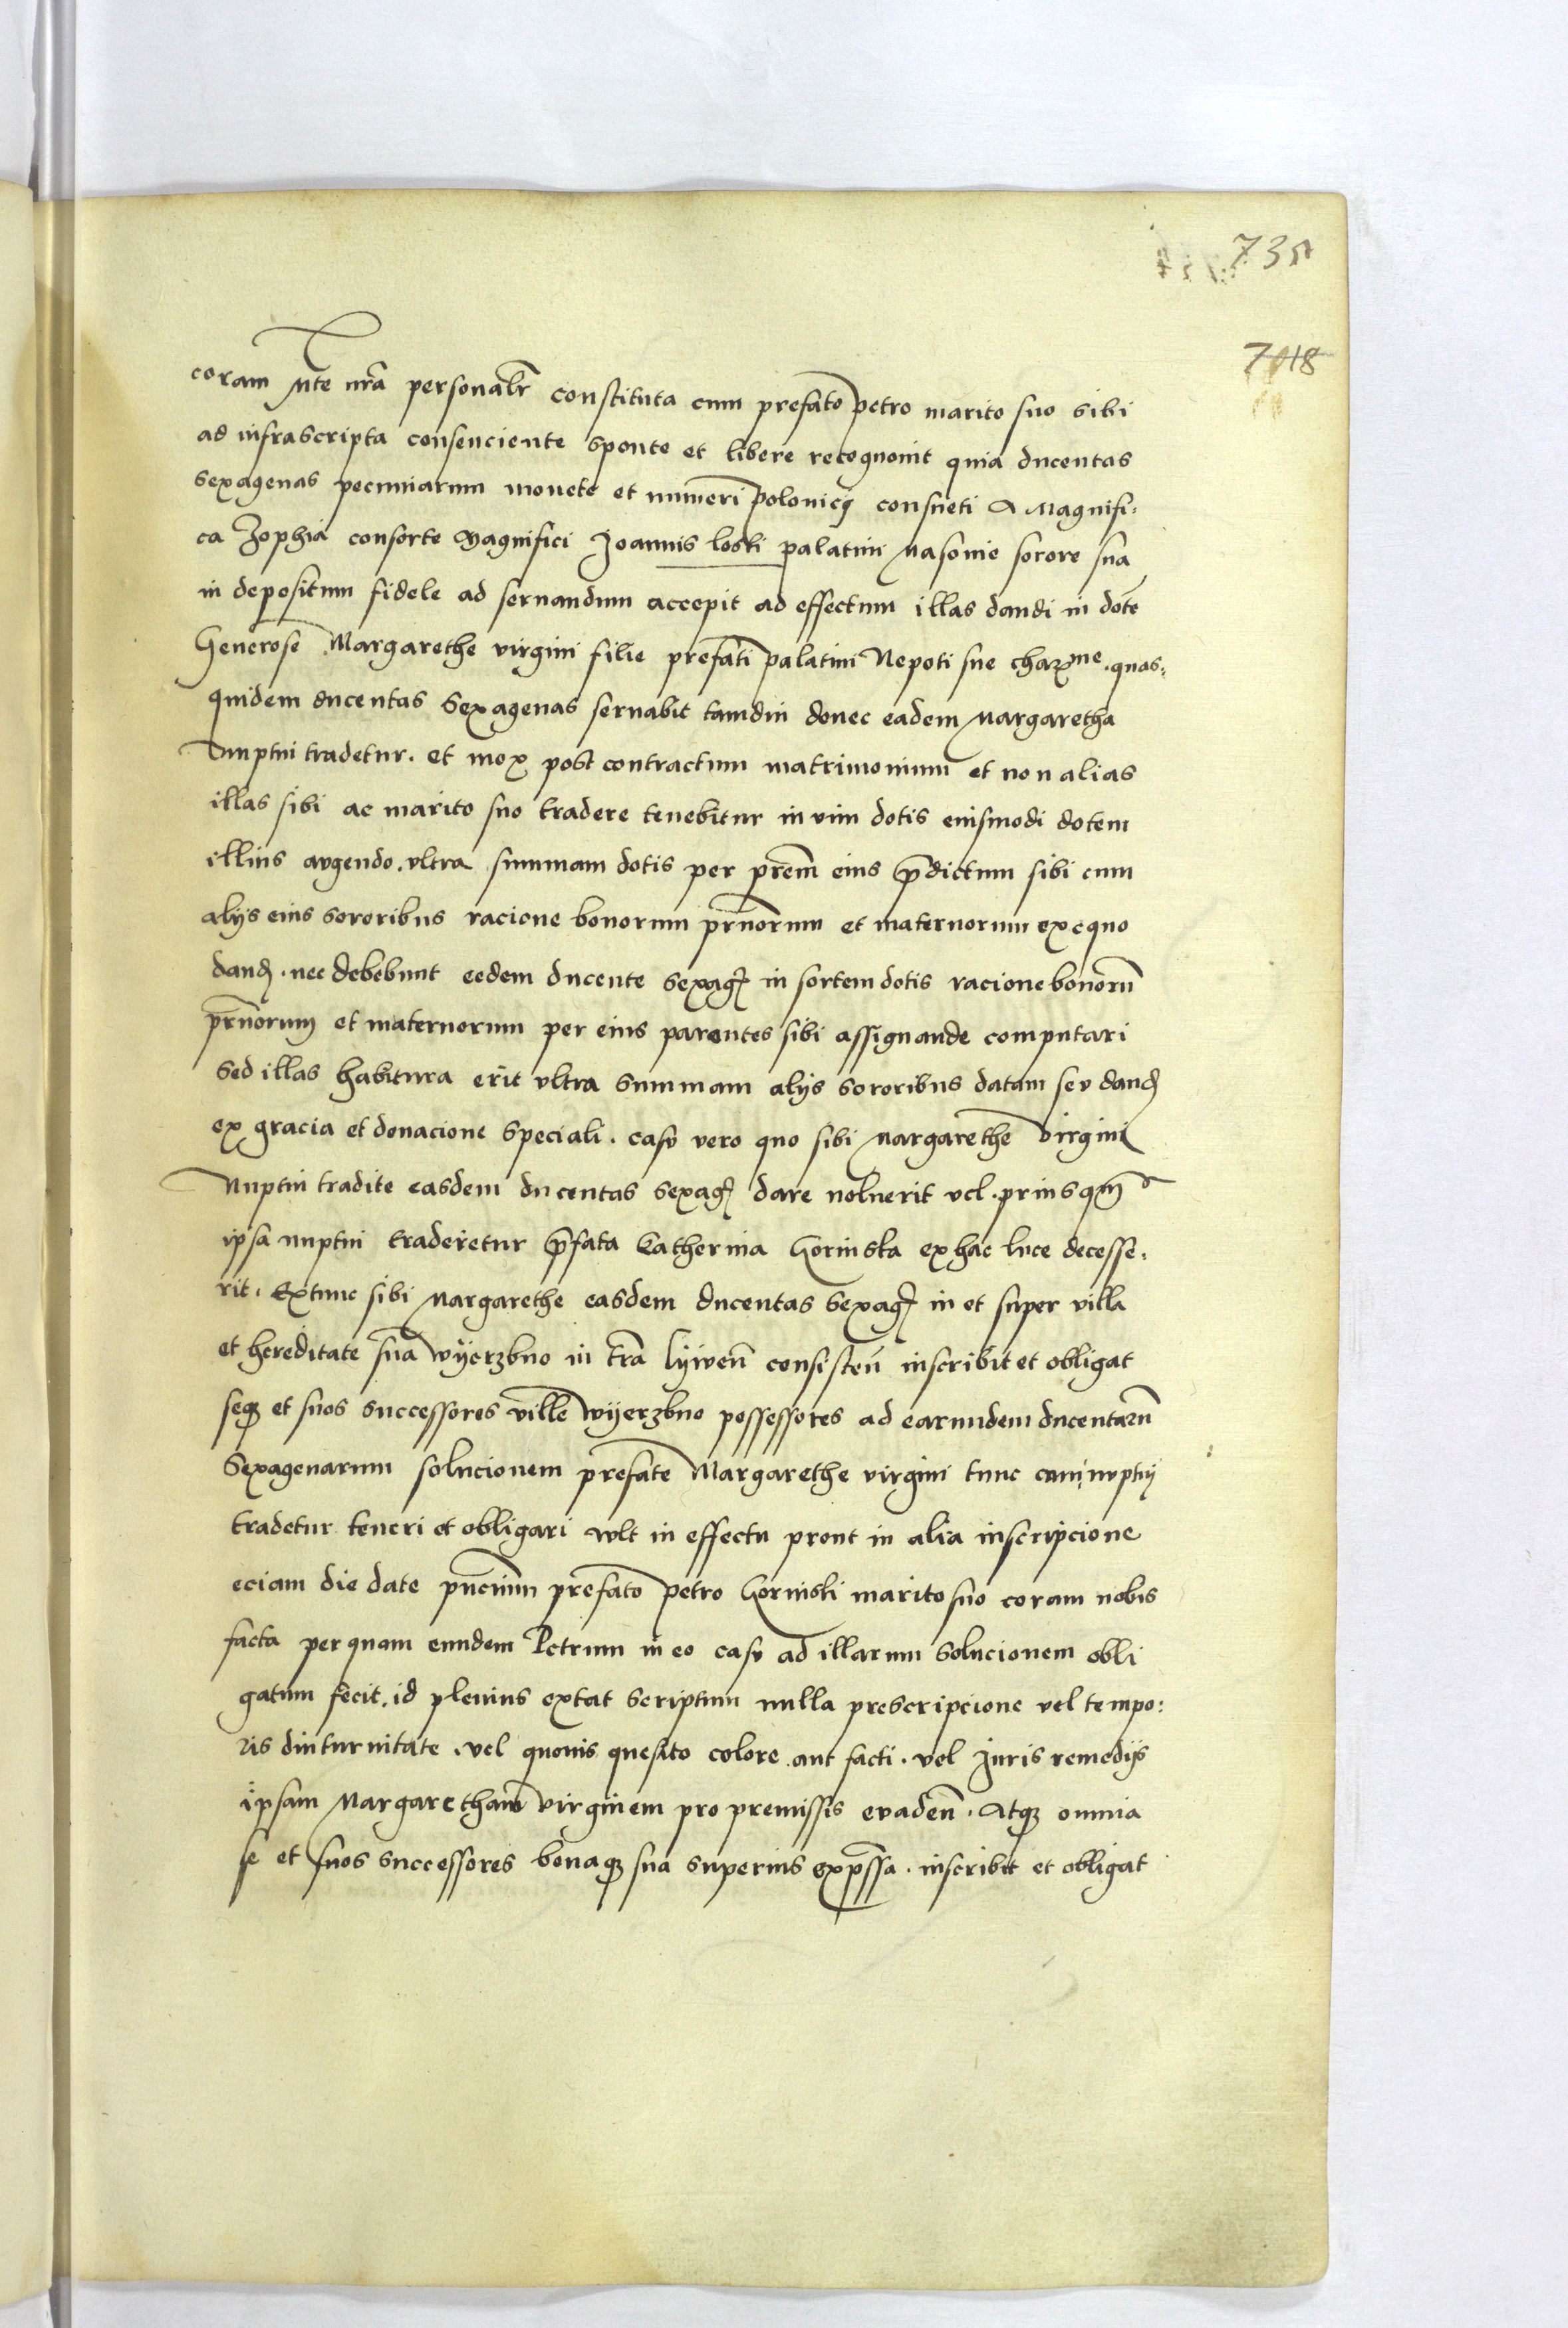 735
7018
coram Mte nrã personalr̃ constituta cum prefato petro marito suo sibi
ad infrascripta consenciente sponte et libere recognouit quia ducentas
sexagenas pecuniarum monete et numeri polonici consueti A Magnifi:
ca Zophia consorte Magnifici Joannis loski palatini Masouie sorore sua
in depositum fidele ad seruandum accepit ad effectum illas dandi in dote
Generose Margarethe virgini filie prefati palatini Nepoti sue charme. quas:
quidem ducentas Sexagenas seruabit tamdiu donec eadem Margaretha
nuptui tradetur. et mox post contractum matrimonium et non alias
illas sibi ac marito suo tradere tenebitur in vim dotis eiusmodi dotem
illius augendo. vltra summam dotis per prem̃ eius p̃dictum sibi cum
alijs eius sororibus racione bonorum prñorum et maternorum exequo
dand. nec debebunt eedem ducente sexag in sortem dotis racione bonorũ
prñorum et maternorum per eius parentes sibi assignande computari
sed illas habitura erit vltra summam alijs sororibus datam seu dand
ex gracia et donacione speciali. casu vero quo sibi Margarethe virgini
nuptui tradite easdem ducentas sexag dare noluerit vel. prius qm̃
ipsa nuptui traderetur p̃fata Catherina Gorinska ex hac luce decesse:
rit. Extunc sibi Margarethe easdem ducentas Sexag in et super villa
et hereditate sua Wyerzbno in trã lyweñ consisteñ inscribit et obligat
seq3 et suos successores ville Wyerzbno possessores ad earundem ducentarũ
Sexagenarum solucionem prefate Margarethe virgini tunc cum nuptuj
tradetur teneri et obligari vult in effectu prout in alia inscripcione
eciam die date pñcium prefato petro Gorinski marito suo coram nobis
facta per quam eundem Petrum in eo casu ad illarum solucionem obli
gatum fecit. id plenius extat scriptum nulla prescripcione vel tempo:
ris diuturnitate. vel quouis quesito colore aut facti. vel Juris remedijs
ipsam Margaretham virginem pro premissis euadeñ. Atq3 omnia
se et suos successores bonaq3 sua superius exp̃ssa. inscribit et obligat